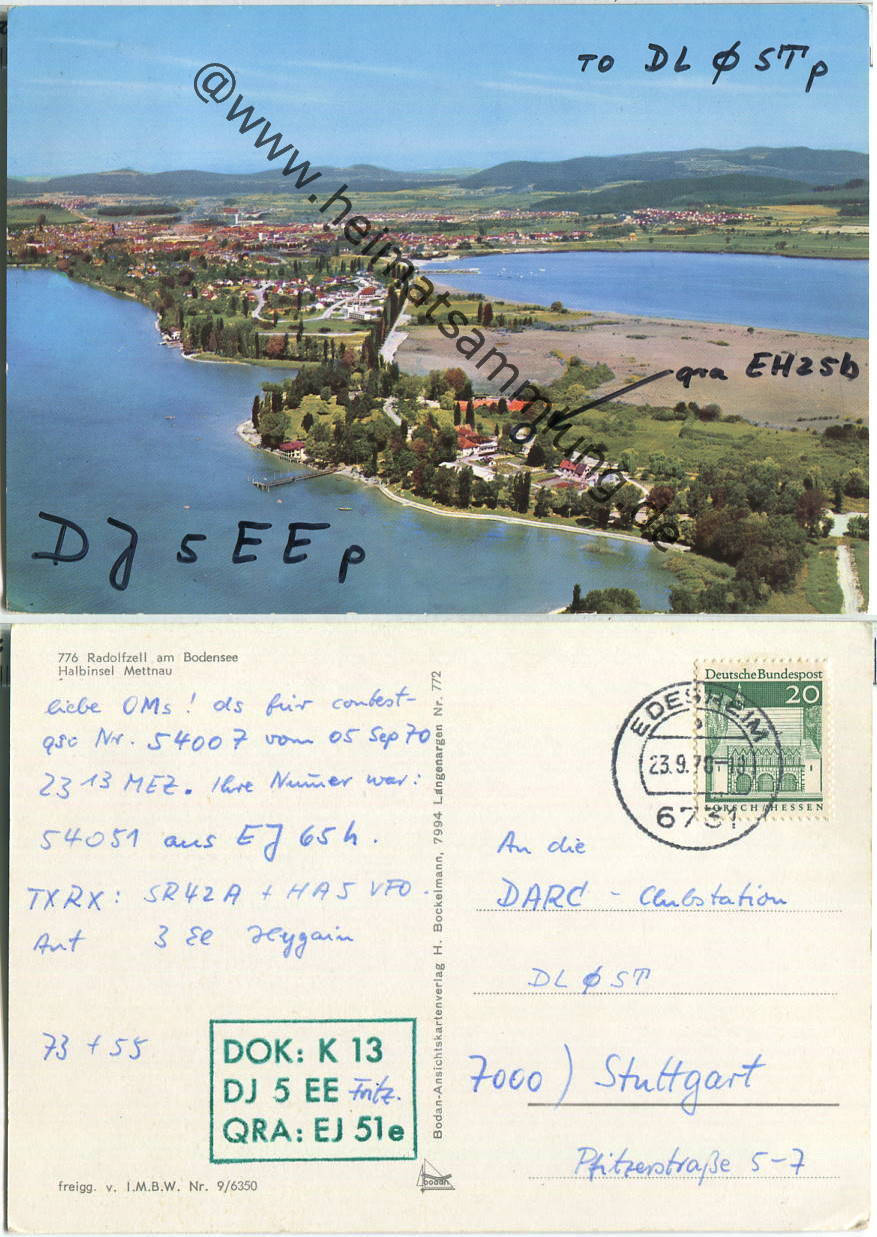 TO DL Ø STp
@www.heimatsammlung.de
qra EH25b
DJ 5 EEp
776 Radolfzell am Bodensee
Halbinsel Mettnau
liebe OMs! ds für contest-
qso Nr. 54007 vom 05 Sep 70
23 13 MEZ. Ihre Numer war:
54051 aus EJ 65h.
TXRX: SR42A + HA5 VFO.
Ant 3 El Hygain
73 + 55
DOK: K 13
DJ 5 EE Fritz.
QRA: EJ 51e
freigg. v. I.M.B.W. Nr. 9/6350
Bodan-Ansichtskartenverlag H. Bockelmann, 7994 Langenargen Nr. 772
bodan
Deutsche Bundespost
20
LORSCH/HESSEN
EDESHEIM
b
23.9.70-10
6731
An die
DARC - Clubstation
DL Ø ST
7000) Stuttgart
Pfitzerstraße 5-7